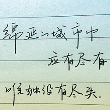 绵延的城市中
应有尽有
唯独没有尽头.